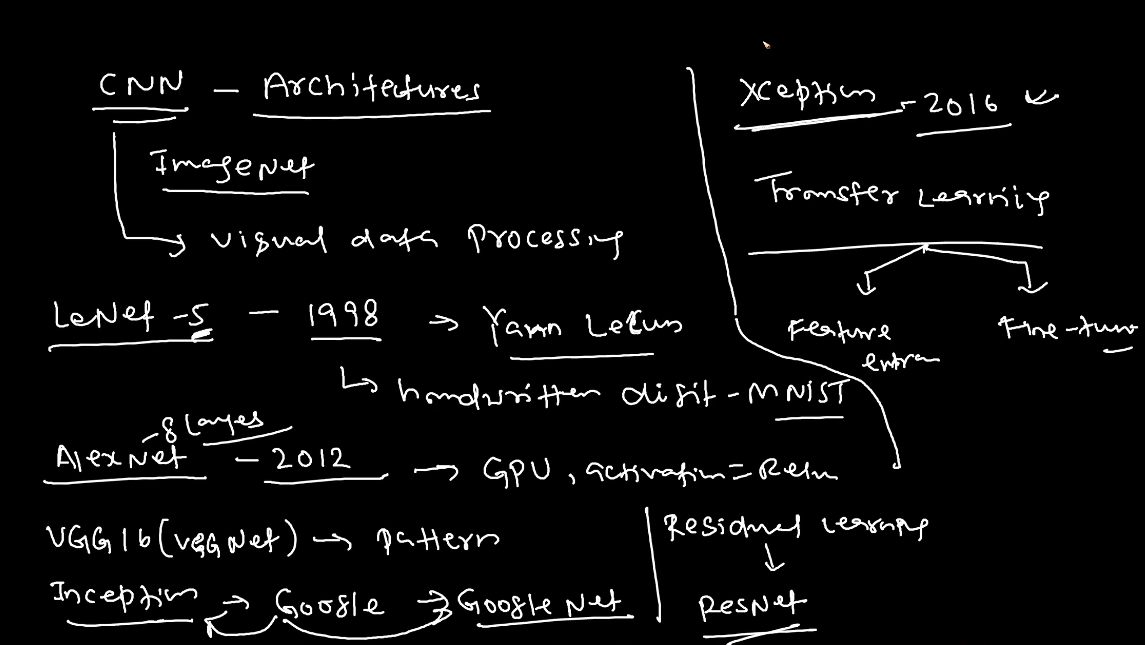 CNN - Architectures
ImageNet
visual data processing
LeNet-5 - 1998 → Yann Lecun
handwritten digit - MNIST
8 Layes
AlexNet - 2012 → GPU, activation = Relu
VGG16 (VGGNet) → pattern
Inception → Google → GoogleNet
Xception - 2016
Transfer Learning
Feature
extra
Fine-tune
Residual learning
ResNet